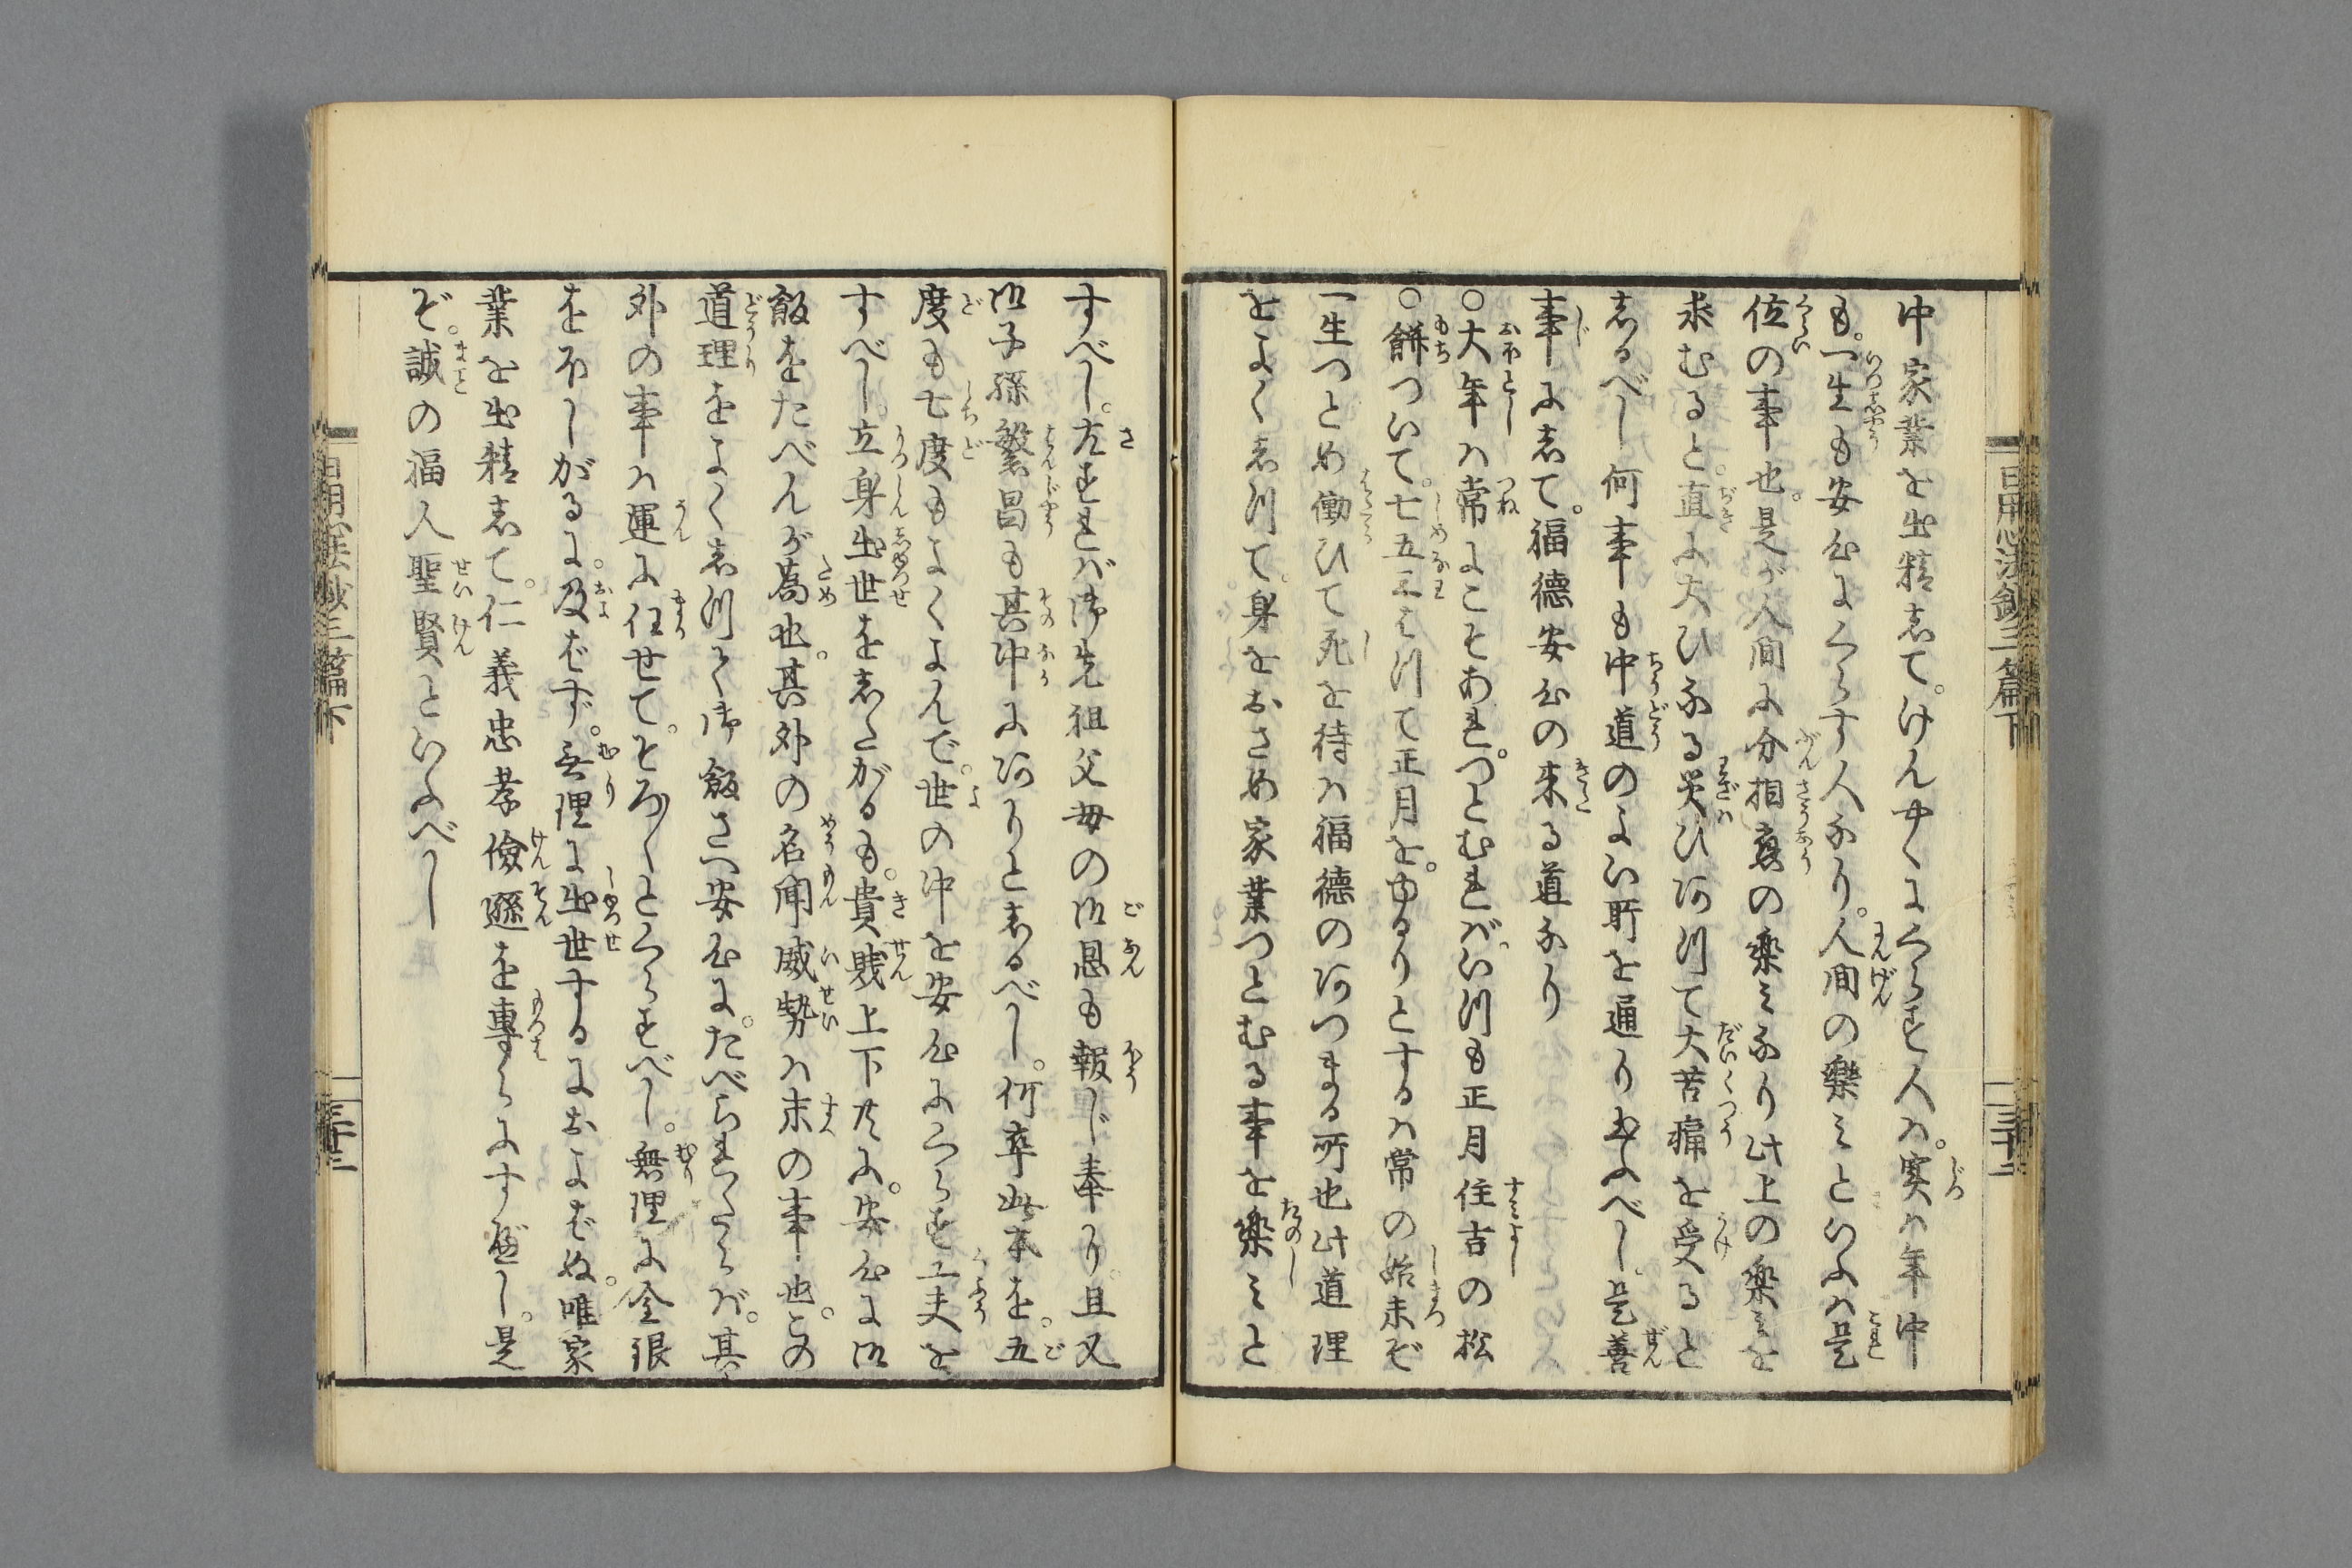 中家業を出精して。けんやくにくらす人ハ。実ハ年中
も。一生も安心にくらす人なり。人間の楽ミといふハ是
位の事也。是が人間に分相應の楽ミなり此上の楽ミを
求むると。直に大ひなる災ひ沢て大苦痛を受ると
しるべし何事も中道のよい所を通り給ふべし。是善
事にして。福徳安心の来る道なり
○大年ハ常にこそあれ。つとむれば。いつも正月住吉の松
○餅ついて。七五三はつて正月を。ゆるりとするハ常の始末ぞ
一生つとめ働ひて死を待ハ福徳のあつまる所也此道理
をよくしつて。身をおさめ家業つとむる事を楽ミと
日用心法鈔三篇下
三十二
すべし。左すれバ御先祖父母の御恩も報じ奉り。且又
御子孫繁昌も其中にありとしるべし。何卒此本を。五
度も七度もよくよんで。世の中を安心にくらす工夫を
すべし。立身出世をしたがるも。貴賤上下共に。安心に御
飯をたべんが為也。其外の名聞威勢ハ末の事也。この
道理をよくしつて御飯さへ安心に。たべられたらバ。其
外の事ハ運に任せて。そろ〳〵とくらすべし。無理に金銀
をほしがるに。及ばず。無理に出世するにおよばぬ。唯家
業を出精して。仁義忠孝儉遜を專らにすべし。是
ぞ。誠の福人聖賢といふべし
日用心法鈔三篇下
三十三